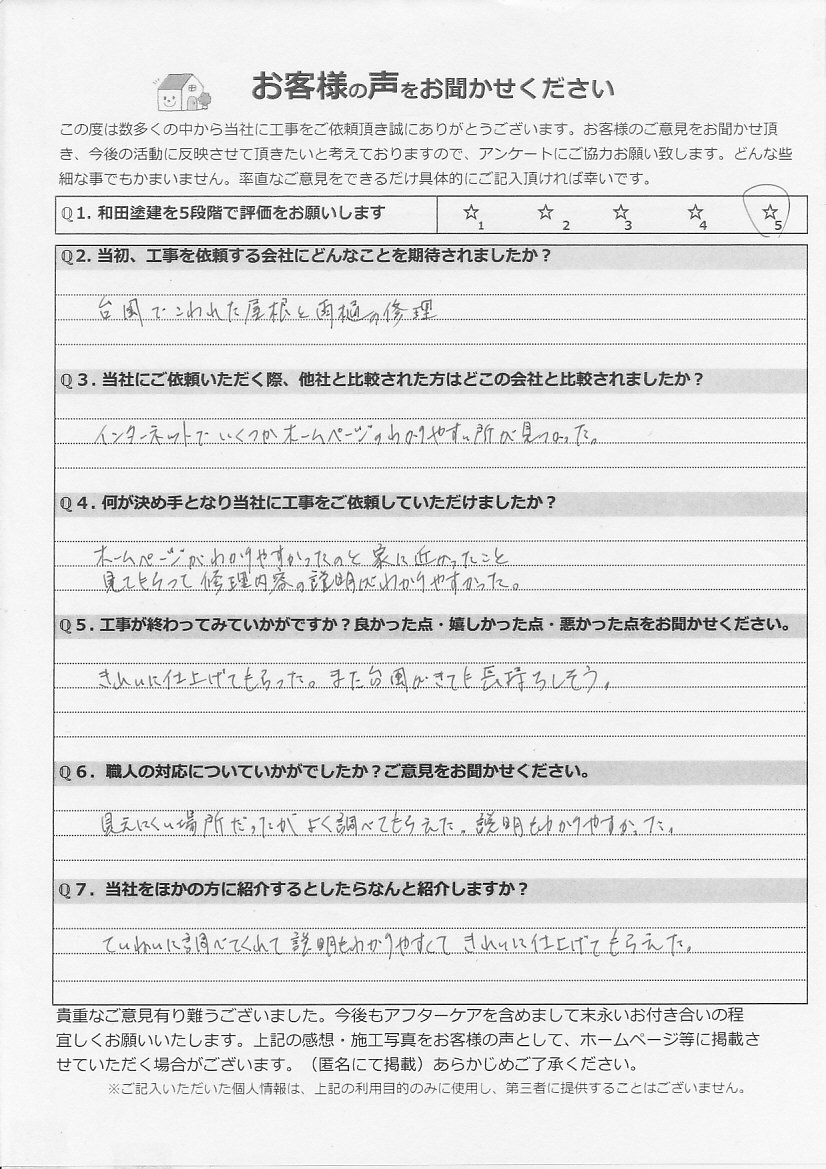 お客様の声をお聞かせください
この度は数多くの中から当社に工事をご依頼頂き誠にありがとうございます。お客様のご意見をお聞かせ頂
き、今後の活動に反映させて頂きたいと考えておりますので、アンケートにご協力お願い致します。どんな些
細な事でもかまいません。率直なご意見をできるだけ具体的にご記入頂ければ幸いです。
Q1. 和田塗建を5段階で評価をお願いします ☆1 ☆2 ☆3 ☆4 ☆5
Q2. 当初、工事を依頼する会社にどんなことを期待されましたか?
台風でこわれた屋根と雨樋の修理
Q3. 当社にご依頼いただく際、他社と比較された方はどこの会社と比較されましたか?
インターネットでいくつかホームページのわかりやすい所が見つかった。
Q4. 何が決め手となり当社に工事をご依頼していただけましたか?
ホームページがわかりやすかったのと家に近かったこと
見てもらって修理内容の説明がわかりやすかった。
Q5. 工事が終わってみていかがですか?良かった点・嬉しかった点・悪かった点をお聞かせください。
きれいに仕上げてもらった。また台風がきても長持ちしそう。
Q6. 職人の対応についていかがでしたか?ご意見をお聞かせください。
見えにくい場所だったがよく調べてもらえた。説明もわかりやすかった。
Q7. 当社をほかの方に紹介するとしたらなんと紹介しますか?
ていねいに調べてくれて説明もわかりやすくてきれいに仕上げてもらえた。
貴重なご意見有り難うございました。今後もアフターケアを含めまして末永いお付き合いの程
宜しくお願いいたします。上記の感想・施工写真をお客様の声として、ホームページ等に掲載さ
せていただく場合がございます。（匿名にて掲載）あらかじめご了承ください。
※ご記入いただいた個人情報は、上記の利用目的のみに使用し、第三者に提供することはございません。